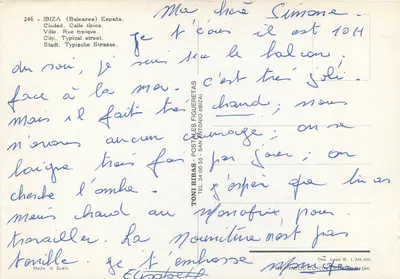 246 - IBIZA (Baleares) España.
Ciudad. Calle típica.
Ville. Rue typique.
City. Typical street.
Stadt. Typische Strasse.
TONI RIBAS - POSTALES FIGUERETAS
TEL. 34 06 53 - SAN ANTONIO (IBIZA)
Ma chère Simone.
Je t'écris il est 10H
du soir, je suis sur le balcon,
face à la mer. c'est très joli.
Mais il fait très chaud, nous
n'avons aucun courage; on se
baigne trois fois par jour; on
cherche l'ombre. J'espère que tu as
moins chaud au Monoprix pour
travailler. La nourriture n'est pas
terrible. Je t'embrasse
Elisabeth